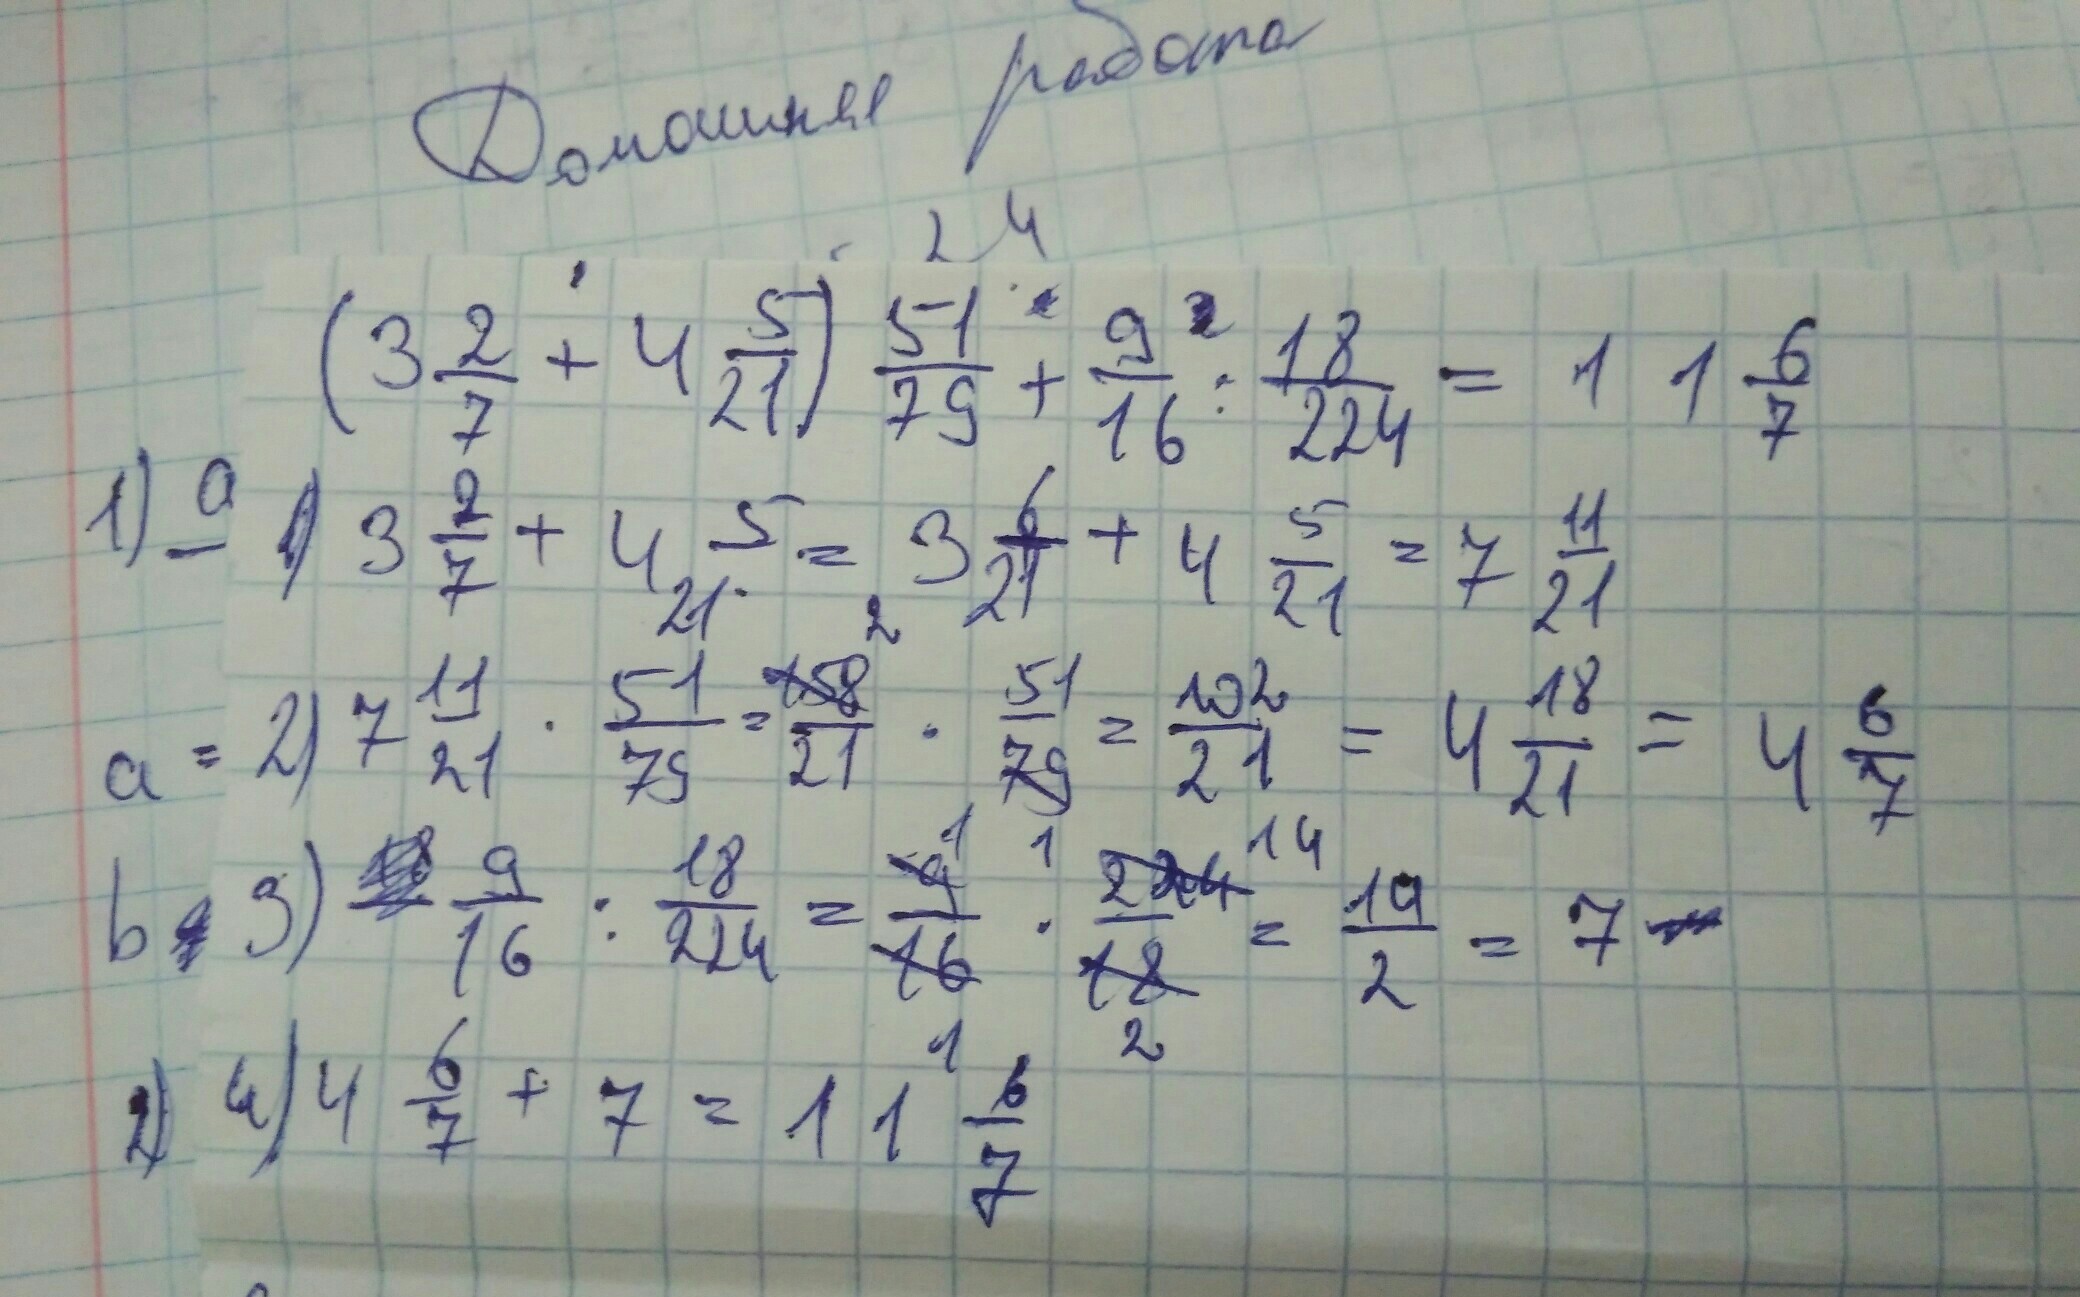 Домашняя работа
24
(3 2/7 + 4 5/21) 51/79 + 9/16 : 18/224 = 11 6/7
1) a 1) 3 2/7 + 4 5/21 = 3 6/21 + 4 5/21 = 7 11/21
a = 2) 7 11/21 · 51/79 = 158/21 2 · 51/79 = 102/21 = 4 18/21 = 4 6/7
b 3) 9/16 : 18/224 = 9/16 1 1 · 224/18 14 2 = 14/2 = 7
2) 4) 4 6/7 + 7 = 11 6/7